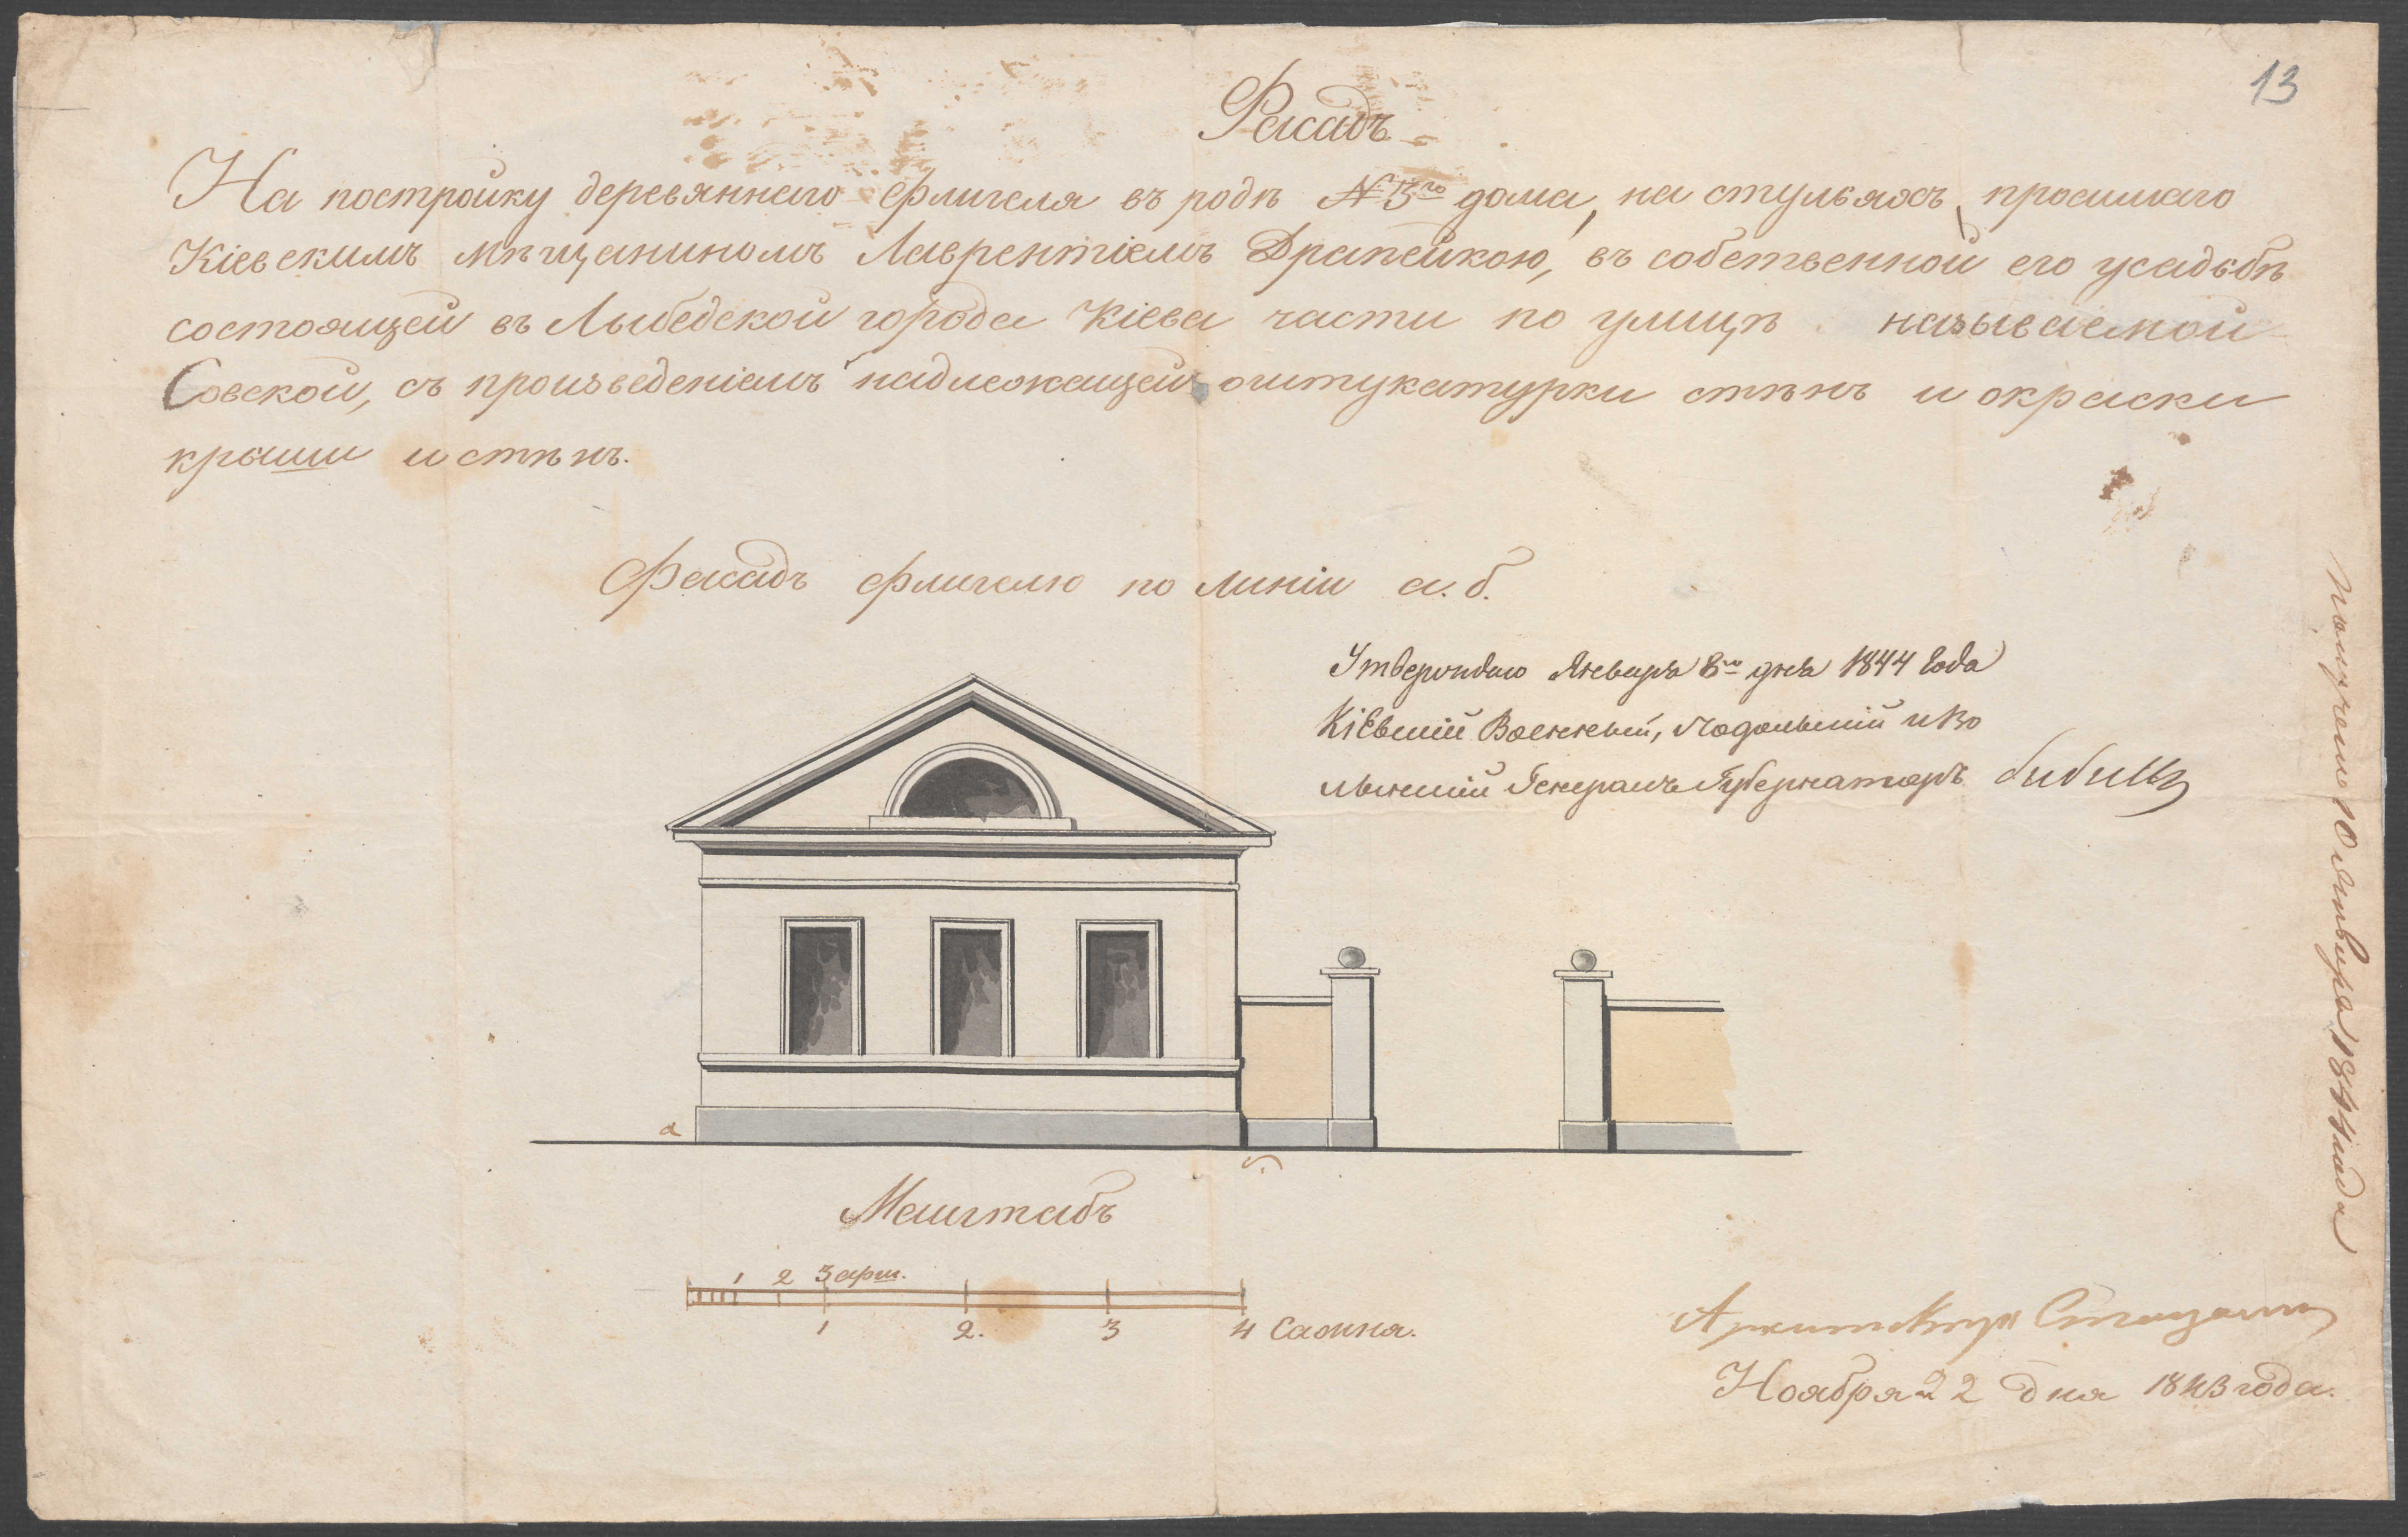 13
Фасадъ
На постройку деревяннаго флигеля въ родѣ № 3го дома, на стульяхъ, просимаго
Кіевскимъ мѣщаниномъ Лаврентіемъ Драпейкою, въ собственной его усадьбѣ
состоящей въ Лыбедской города Кіева части по улицѣ называемой
Совской, съ произведеніемъ надлежащей оштукатурки стѣнъ и окраски
крыши и стѣнъ.
Фасадъ флигелю по линіи а. б.
Утверждаю Января 8го дня 1844 года
Кіевскій Военный, Подольскій и Во
лынскій Генералъ Губернаторъ Бибиковъ
а
б.
Маштабъ
1 2 3 арш.
1 2. 3 4 Сажня.
Архитекторъ
Ноября 22 дня 1843 года.
Получено 10 Января 1844 года